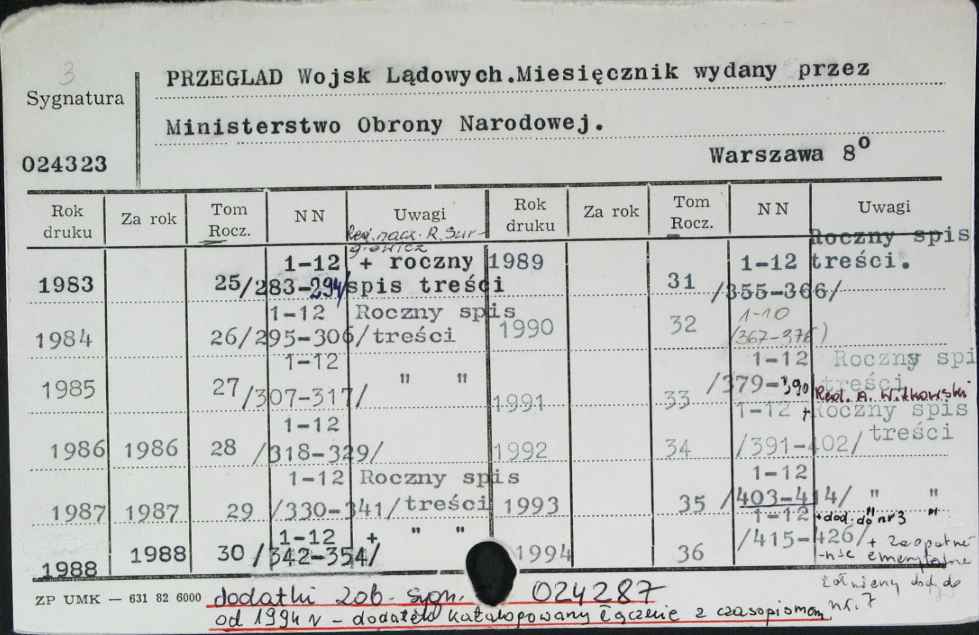 3
PRZEGLAD Wojsk Lądowych.Miesięcznik wydany przez
Sygnatura
Ministerstwo Obrony Narodowej.
024323
Warszawa 8o
Rok druku Za rok Tom Rocz. NN Uwagi Rok druku Za rok Tom Rocz. NN Uwagi
Red. nacz. R. Sur-
giewicz
1983 25 1-12 /283-294/ + roczny spis treści
1984 26 1-12 /295-306/ Roczny spis treści
1985 27 1-12 /307-317/ " "
1986 1986 28 1-12 /318-329/
1987 1987 29 1-12 /330-341/ Roczny spis treści
1988 1988 30 1-12 /342-354/ + " "
1989 31 1-12 /355-366/ Roczny spis treści.
1990 32 1-10 (367-376)
1991 33 1-12 /379-390 Roczny spis treści
Red. A. Witkowski
1992 34 1-12 /391-402/ + Roczny spis treści
1993 35 1-12 /403-414/ " "
1994 36 1-12 /415-426/ " "
+dod. do nr 3
+ Zaopatrze
-nie emerytalne
żołnierzy dod. do
nr. 7
ZP UMK — 631 82 6000
dodatki zob. sygn. 024287
od 1994 r - dodatek katalogowany łącznie z czasopismem